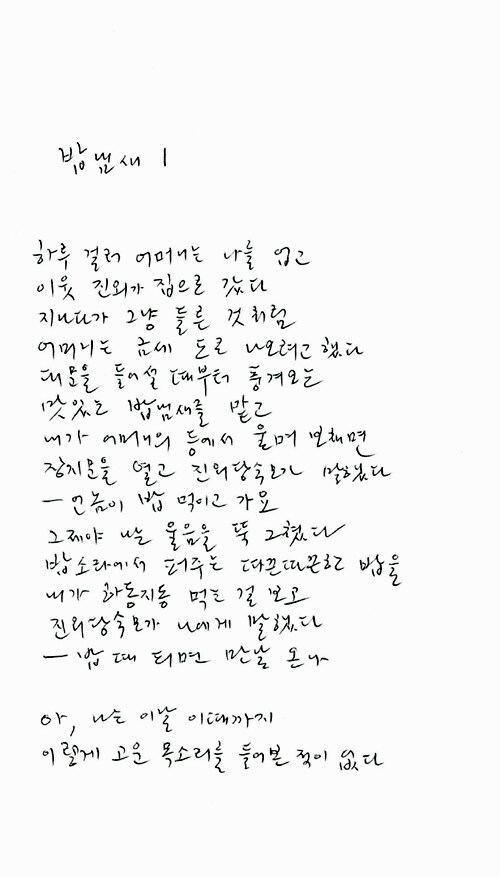 밥냄새 1
하루 걸러 어머니는 나를 업고
이웃 진외가 집으로 갔다
지나다가 그냥 들른 것처럼
어머니는 금세 도로 나오려고 했다
대문을 들어설 때부터 풍겨오는
맛있는 밥냄새를 맡고
내가 어머니의 등에서 울며 보채면
장지문을 열고 진외당숙모가 말했다
— 언놈이 밥 먹이고 가요
그제야 나는 울음을 뚝 그쳤다
밥소라에서 퍼주는 따끈따끈한 밥을
내가 하동지동 먹는 걸 보고
진외당숙모가 나에게 말했다
— 밥 때 되면 만날 온나
아, 나는 이날 이때까지
이렇게 고운 목소리를 들어본 적이 없다